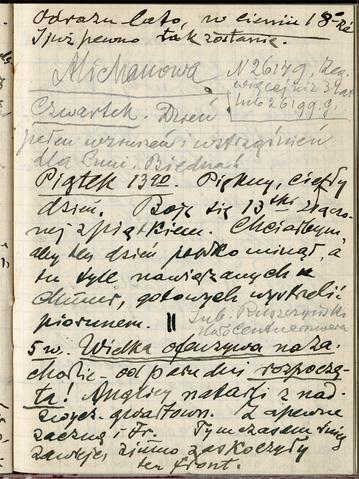 odrazu lato, w cieniu 18°
I już pewno tak zostanie.
Michanowa
N 26179,
więcej niż 3 lat
lub 26199 g.
Czwartek. Dzień
pełen wzruszeń i wstrząśnień
dla Emi. Biedna!
Piątek 13go. Piękny, ciepły
dzień. Boję się 13tki złączo
nej z piątkiem. Chciałbym,
aby ten dzień już minął, a
tu tyle nawiązanych w
chmur, gotowych wystrzelić
piorunem. ||
5 w. Wielka ofenzywa na Za
chodzie - od paru dni rozpoczę
ta! Anglicy natarli z nad
zwycz. gwałtown. Zapewne
zaczną i Fr. Tymczasem śnieg
zawieje, zimno zaskoczyły
ten front.